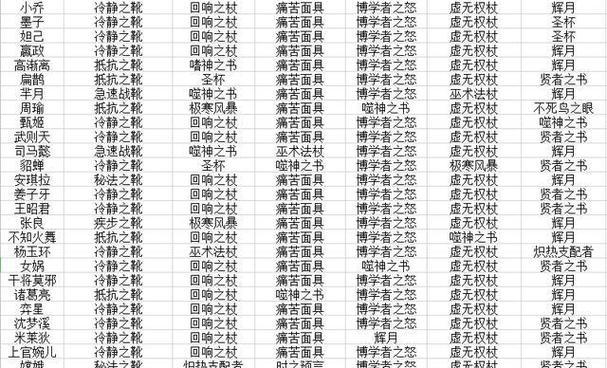 小乔 冷静之靴 回响之杖 痛苦面具 博学者之怒 虚无权杖 辉月
墨子 冷静之靴 回响之杖 痛苦面具 博学者之怒 虚无权杖 圣杯
妲己 冷静之靴 回响之杖 痛苦面具 博学者之怒 虚无权杖 圣杯
嬴政 冷静之靴 回响之杖 痛苦面具 博学者之怒 虚无权杖 辉月
高渐离 抵抗之靴 嗜神之书 痛苦面具 博学者之怒 虚无权杖 辉月
扁鹊 抵抗之靴 圣杯 痛苦面具 博学者之怒 虚无权杖 贤者之书
芈月 急速战靴 噬神之书 痛苦面具 博学者之怒 巫术法杖 辉月
周瑜 抵抗之靴 极寒风暴 痛苦面具 噬神之书 虚无权杖 不死鸟之眼
甄姬 冷静之靴 回响之杖 痛苦面具 博学者之怒 虚无权杖 噬神之书
武则天 冷静之靴 回响之杖 痛苦面具 博学者之怒 虚无权杖 贤者之书
司马懿 急速战靴 噬神之书 巫术法杖 博学者之怒 虚无权杖 辉月
貂蝉 冷静之靴 圣杯 噬神之书 博学者之怒 极寒风暴 贤者之书
安琪拉 秘法之靴 回响之杖 痛苦面具 博学者之怒 虚无权杖 辉月
姜子牙 冷静之靴 回响之杖 痛苦面具 博学者之怒 虚无权杖 贤者之书
王昭君 冷静之靴 回响之杖 痛苦面具 博学者之怒 虚无权杖 贤者之书
张良 疾步之靴 极寒风暴 痛苦面具 博学者之怒 虚无权杖 辉月
不知火舞 抵抗之靴 回响之杖 痛苦面具 博学者之怒 噬神之书 辉月
杨玉环 冷静之靴 巫术法杖 痛苦面具 博学者之怒 虚无权杖 炽热支配者
女娲 冷静之靴 回响之杖 痛苦面具 噬神之书 虚无权杖 贤者之书
干将莫邪 冷静之靴 回响之杖 痛苦面具 博学者之怒 虚无权杖 辉月
诸葛亮 抵抗之靴 回响之杖 噬神之书 博学者之怒 虚无权杖 辉月
弈星 冷静之靴 回响之杖 痛苦面具 博学者之怒 虚无权杖 辉月
沈梦溪 冷静之靴 回响之杖 痛苦面具 博学者之怒 虚无权杖 贤者之书
米莱狄 冷静之靴 回响之杖 痛苦面具 辉月 虚无权杖 贤者之书
上官婉儿 冷静之靴 回响之杖 痛苦面具 博学者之怒 虚无权杖 辉月
嫦娥 秘法之靴 炽热支配者 时之预言 博学者之怒 虚无权杖 贤者之书